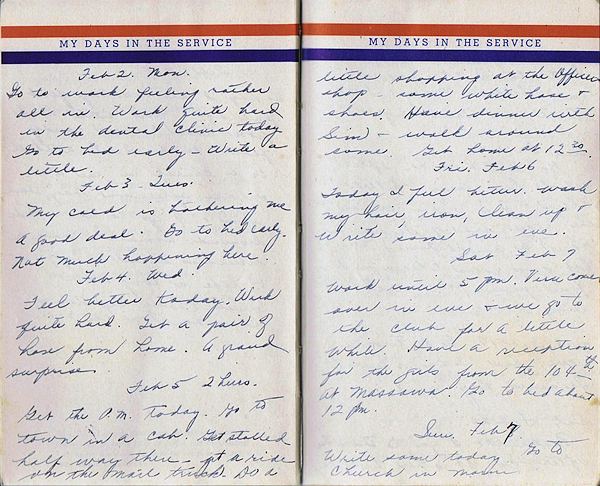 MY DAYS IN THE SERVICE
Feb 2. Mon.
Go to work feeling rather
all in. Work quite hard
in the dental clinic today
Go to bed early - Write a
little.
Feb 3. Tues.
My cold is bothering me
a good deal. Go to bed early.
Not much happening here.
Feb 4. Wed.
Feel better today. Work
quite hard. Get a pair of
hose from home. A grand
surprise.
Feb 5 Thurs.
Get the P.M. today. Go to
town in a cab. Get stalled
half way there - get a ride
on the mail truck. Do a
MY DAYS IN THE SERVICE
little shopping at the Officers
shop - some white hose +
shoes. Have dinner with
Sim - walk around
some. Get home at 12 30.
Fri. Feb 6
Today I feel better. Wash
my hair, iron, clean up +
write some in eve.
Sat Feb 7
Work until 5 pm. Vera comes
over in eve + we go to
the club for a little
while. Have a reception
for the girls from the 104th
at Massawa. Go to bed about
12 pm.
Sun. Feb 7
Write some today. Go to
Church in morn